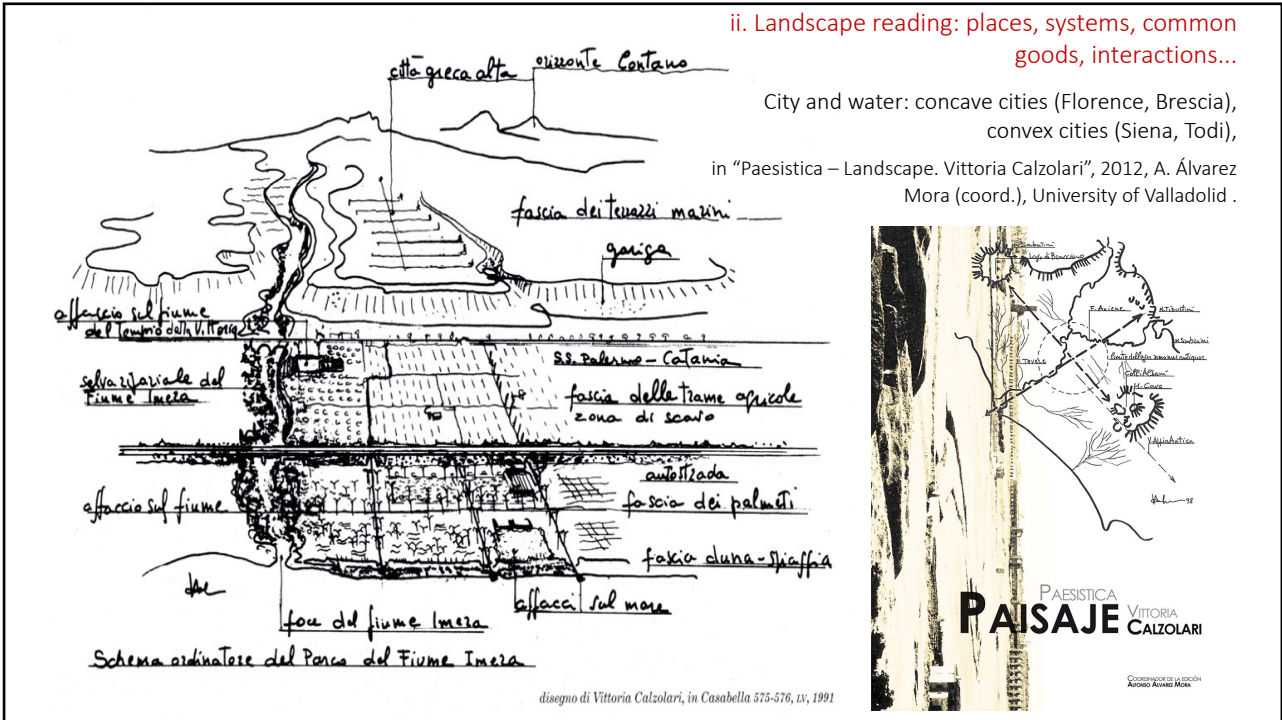 ii. Landscape reading: places, systems, common
goods, interactions...
City and water: concave cities (Florence, Brescia),
convex cities (Siena, Todi),
in “Paesistica – Landscape. Vittoria Calzolari”, 2012, A. Álvarez
Mora (coord.), University of Valladolid .
città greca alta
orizzonte lontano
fascia dei terrazzi marini
gariga
affaccio sul fiume
del Tempio della Vittoria
S.S. Palermo - Catania
selva ripariale del
Fiume Imera
fascia delle trame agricole
zona di scavo
autostrada
affaccio sul fiume
fascia dei palmeti
fascia duna-spiaggia
affacci sul mare
foce del fiume Imera
Schema ordinatore del Parco del Fiume Imera
disegno di Vittoria Calzolari, in Casabella 575-576, LV, 1991
M. Sabatini
Lago di Bracciano
F. Aniene
M. Tiburtini
F. Tevere
Colli Albani
M. Cavo
V. Appia Antica
98
PAESISTICA
PAISAJE
VITTORIA
CALZOLARI
COORDINADOR DE LA EDICIÓN
ALFONSO ALVAREZ MORA